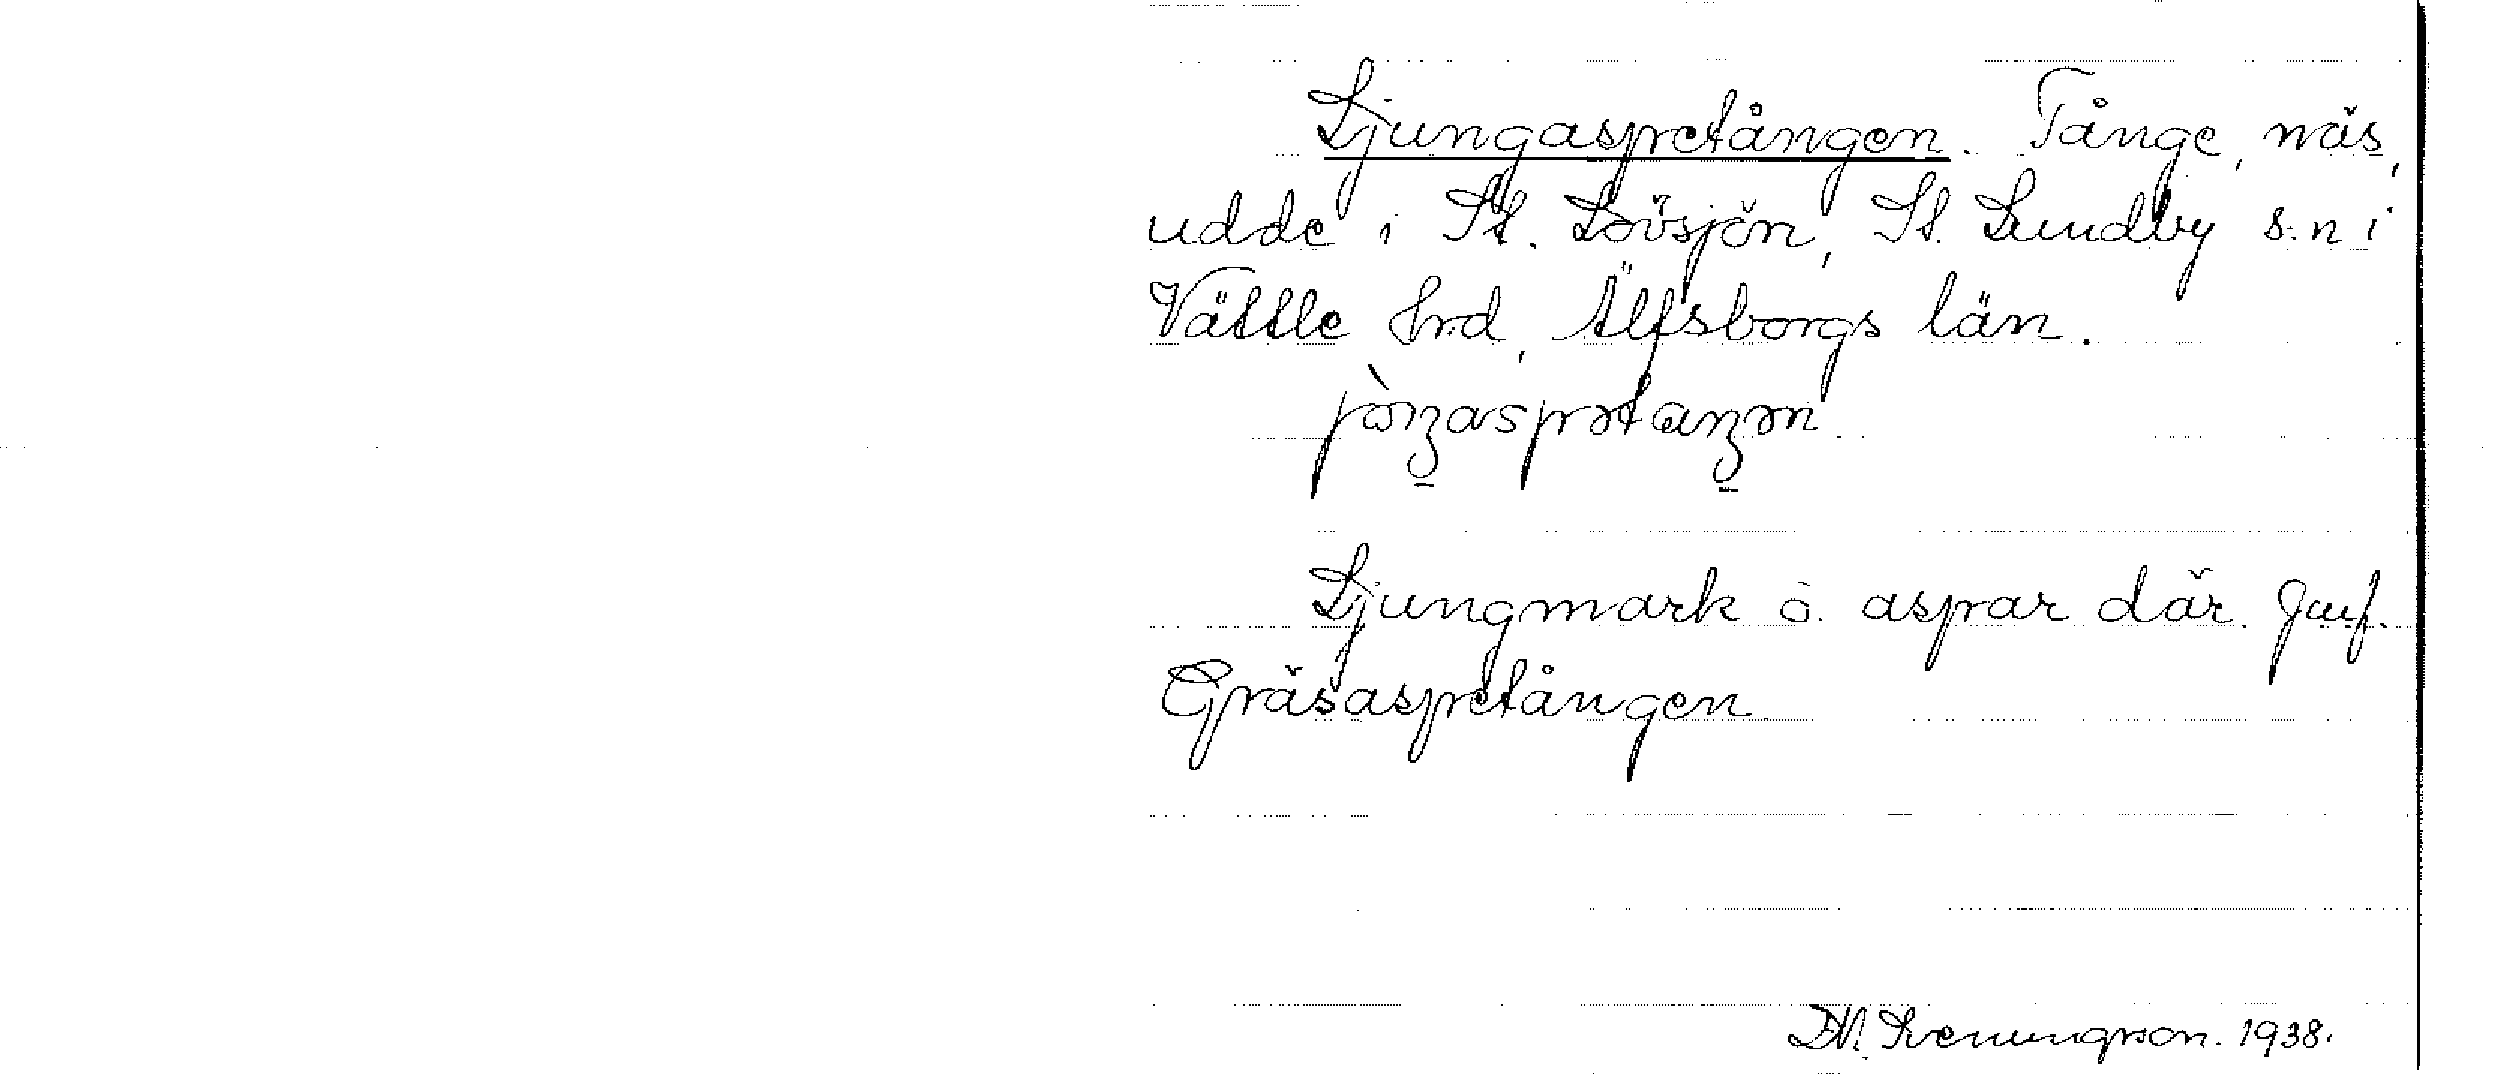 Ljungaspretången. Tånge, näs,
udde i St. Lövsjön, St. Lundby s:n i
Vättle hrd, Älfsborgs län.
Ljungmark o. aspar där. Jmf.
Gräsaspretången
1938.